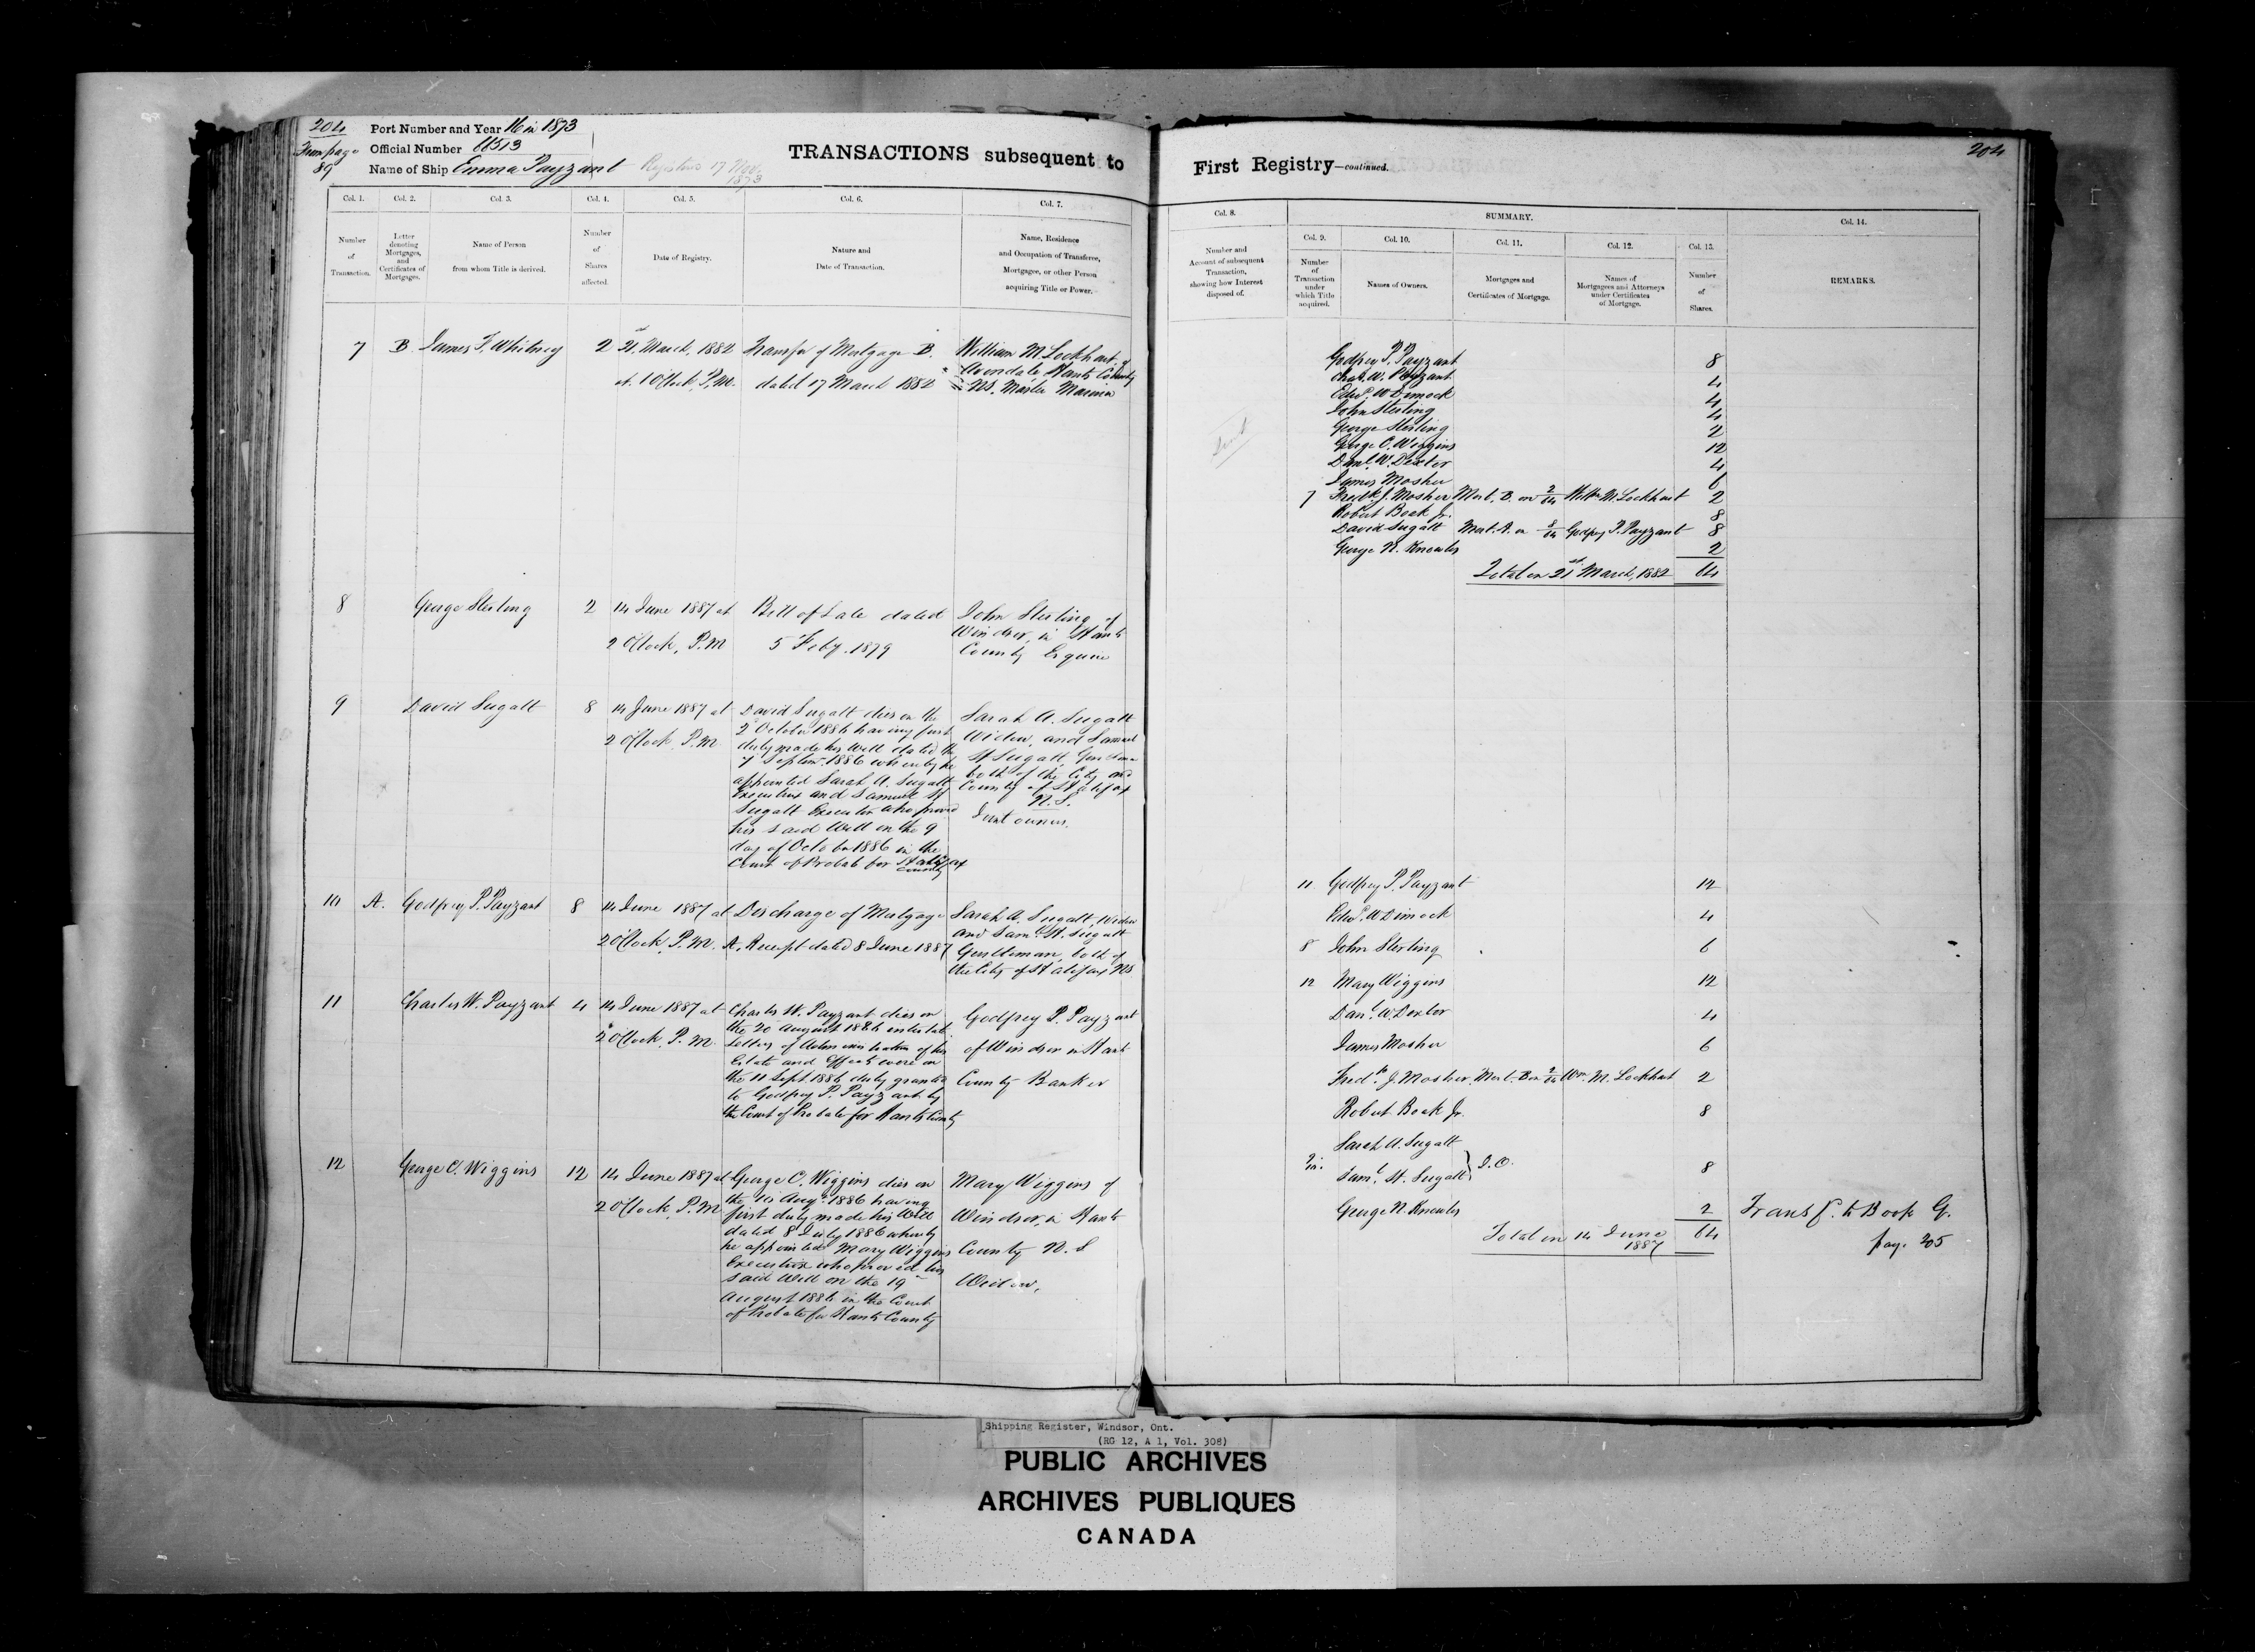 204
From page
89
Port Number and Year 16 in 1873
Official Number
Name of Ship Emma Payzant Registered 17 Nov.
1873
TRANSACTIONS subsequent to
First Registry—continued.
204
Col. 1.
Number
of
Transaction.
Col. 2.
Letter
denoting
Mortgages,
and
Certificates of
Mortgages.
Col. 3.
Name of Person
from whom Title is derived.
Col. 4.
Number
of
Shares
affected.
Col. 5.
Date of Registry.
Col. 6.
Nature and
Date of Transaction.
Col. 7.
Name, Residence
and Occupation of Transferee,
Mortgagee, or other Person
acquiring Title or Power.
Col. 8.
Number and
Account of subsequent
Transaction,
showing how Interest
disposed of.
SUMMARY.
Col. 9.
Number
of
Transaction
under
which Title
acquired.
Col. 10.
Names of Owners.
Col. 11.
Mortgages and
Certificates of Mortgage.
Col. 12.
Names of
Mortgagees and Attorneys
under Certificates
of Mortgage.
Col. 13.
Number
of
Shares.
Col. 14.
REMARKS.
7 B James F. Whitney 2
21st March, 1882
at 1 O'Clock P.M.
Transfer of Mortgage B.
dated 17 March 1882
William M Lockhart of
Avondale Hants County
NS. Master Mariner
Godfrey P. Payzant 8
Chas. W. Payzant 4
Edwd. W Dimock 4
John Sterling 4
George Sterling 2
George C. Wiggins 12
Danl. W. Dexter 4
James Mosher 6
7 Fredk. J. Mosher Mort. B. on 2/64 Willm M. Lockhart 2
Robert Boak Jr. 8
David Sugatt Mort. A. on 8/64 Godfrey P. Payzant 8
George N. Knowles 2
Total on 21st March, 1882 64
8 George Sterling 2
14 June 1887 at
2 O'Clock, P.M
Bill of Sale dated
5 Feby. 1879
John Sterling of
Windsor, in Hants
County Esquire
9 David Sugatt 8
14 June 1887 at
2 O'Clock, P.M
David Sugatt died on the
2 October 1886 having first
duly made his Will dated the
7 Septem. 1886 whereby he
appointed Sarah A. Sugatt
Executrix and Samuel H
Sugatt Executor who proved
his said Will on the 9
day of October 1886 in the
Court of Probate for Halifax
County
Sarah A. Sugatt
Widow, and Samuel
H Sugatt, Gentleman
both of the City and
County of Halifax
N.S.
Joint owners.
10 A. Godfrey P. Payzant 8
14 June 1887 at
2 O'Clock, P.M.
Discharge of Mortgage
A. Receipt dated 8 June 1887
Sarah A. Sugatt, Widow
and Saml. H. Sugatt
Gentleman, both of
the City of Halifax NS
11 Charles W. Payzant 4
14 June 1887 at
2 O'Clock, P.M.
Charles W. Payzant died on
the 20 August 1886 intestate
Letters of Administration of his
Estate and Effects were on
the 11 Sept. 1886 duly granted
to Godfrey P. Payzant by
the Court of Probate for Hants County
Godfrey P. Payzant
of Windsor in Hants
County Banker
12 George C. Wiggins 12
14 June 1887 at
2 O'Clock, P.M
George C. Wiggins died on
the 10 Augt. 1886 having
first duly made his Will
dated 8 July 1886 whereby
he appointed Mary Wiggins
Executrix who proved his
said Will on the 19
August 1886 in the Court
of Probate for Hants County
Mary Wiggins of
Windsor, in Hants
County N.S
Widow.
11 Godfrey P. Payzant 12
Edwd. W Dimock 4
8 John Sterling 6
12 Mary Wiggins 12
Danl. W. Dexter 4
James Mosher 6
Fredk. J. Mosher Mort. B on 2/64 Wm. M. Lockhart 2
Robert Boak Jr. 8
Sarah A. Sugatt
Saml. H. Sugatt J.O. 8
George N. Knowles 2
Total on 14 June
1887 64
Transf. to Book G.
page 205
Shipping Register, Windsor, Ont.
(RG 12, A 1, Vol. 308)
PUBLIC ARCHIVES
ARCHIVES PUBLIQUES
CANADA